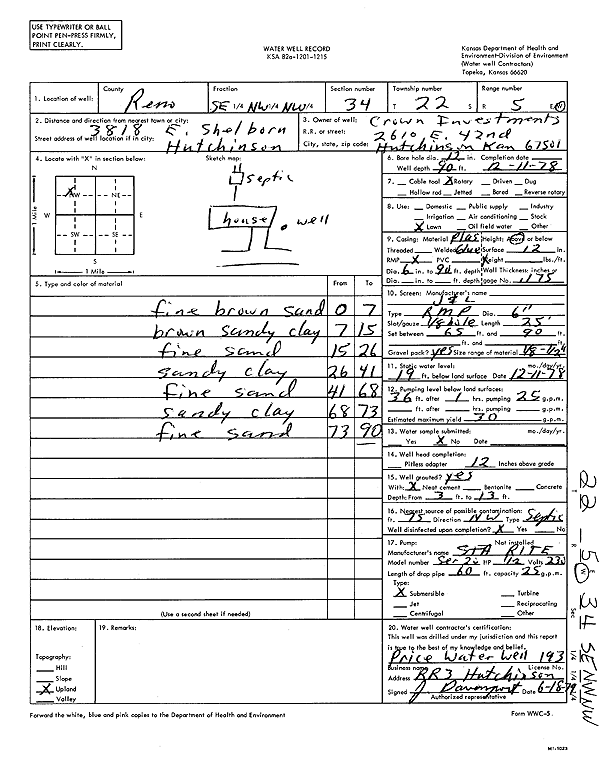 USE TYPEWRITER OR BALL
POINT PEN-PRESS FIRMLY,
PRINT CLEARLY.
WATER WELL RECORD
KSA 82a-1201-1215
Kansas Department of Health and
Environment-Division of Environment
(Water well Contractors)
Topeka, Kansas 66620
1. Location of well: County Reno Fraction SE 1/4 NW 1/4 NW 1/4 Section number 34 Township number T 22 S Range number R 5 E/W
2. Distance and direction from nearest town or city:
Street address of well location if in city: 3818 E. Shelborn
Hutchinson
3. Owner of well: Crown Investments
R.R. or street: 2610 E. 42nd
City, state, zip code: Hutchinson Kan 67501
4. Locate with "X" in section below:
N
NW NE
W E
SW SE
S
1 Mile
1 Mile
Sketch map:
septic
house
well
6. Bore hole dia. 12 in. Completion date
Well depth 90 ft. 12-11-78
7. Cable tool X Rotary Driven Dug
Hollow rod Jetted Bored Reverse rotary
8. Use: Domestic Public supply Industry
Irrigation Air conditioning Stock
X Lawn Oil field water Other
9. Casing: Material Plas Height: Above or below
Threaded Welded Glue Surface 12 in.
RMP X PVC Weight lbs./ft.
Dia. 6 in. to 90 ft. depth Wall Thickness: inches or
Dia. in. to ft. depth gage No. .175
5. Type and color of material From To
fine brown sand 0 7
brown sandy clay 7 15
fine sand 15 26
sandy clay 26 41
fine sand 41 68
sandy clay 68 73
fine sand 73 90
(Use a second sheet if needed)
10. Screen: Manufacturer's name
J & L
Type RMP Dia. 6"
Slot/gauze 1/8 hole Length 25'
Set between 65 ft. and 90 ft.
ft. and ft.
Gravel pack? yes Size range of material 1/8-1/2"
11. Static water level: mo./day/yr.
19 ft. below land surface Date 12-11-78
12. Pumping level below land surfaces:
36 ft. after 1 hrs. pumping 25 g.p.m.
ft. after hrs. pumping g.p.m.
Estimated maximum yield 30 g.p.m.
13. Water sample submitted: mo./day/yr.
Yes X No Date
14. Well head completion:
Pitless adapter 12 Inches above grade
15. Well grouted? yes
With: X Neat cement Bentonite Concrete
Depth: From 3 ft. to 13 ft.
16. Nearest source of possible contamination:
ft. 75 Direction NW Type Septic
Well disinfected upon completion? X Yes No
17. Pump: Not installed
Manufacturer's name STA RITE
Model number HP 1/2 Volts 230
Length of drop pipe 60 ft. capacity 25 g.p.m.
Type:
X Submersible Turbine
Jet Reciprocating
Centrifugal Other
18. Elevation:
Topography:
Hill
Slope
X Upland
Valley
19. Remarks:
20. Water well contractor's certification:
This well was drilled under my jurisdiction and this report
is true to the best of my knowledge and belief.
Price Water Well 193
Business name License No.
Address RR3 Hutchinson
Signed J Davenport Date 6-18-79
Authorized representative
Forward the white, blue and pink copies to the Department of Health and Environment
Form WWC-5
T 22 R 5 E W Sec 34 1/4 1/4 1/4 SENWNW